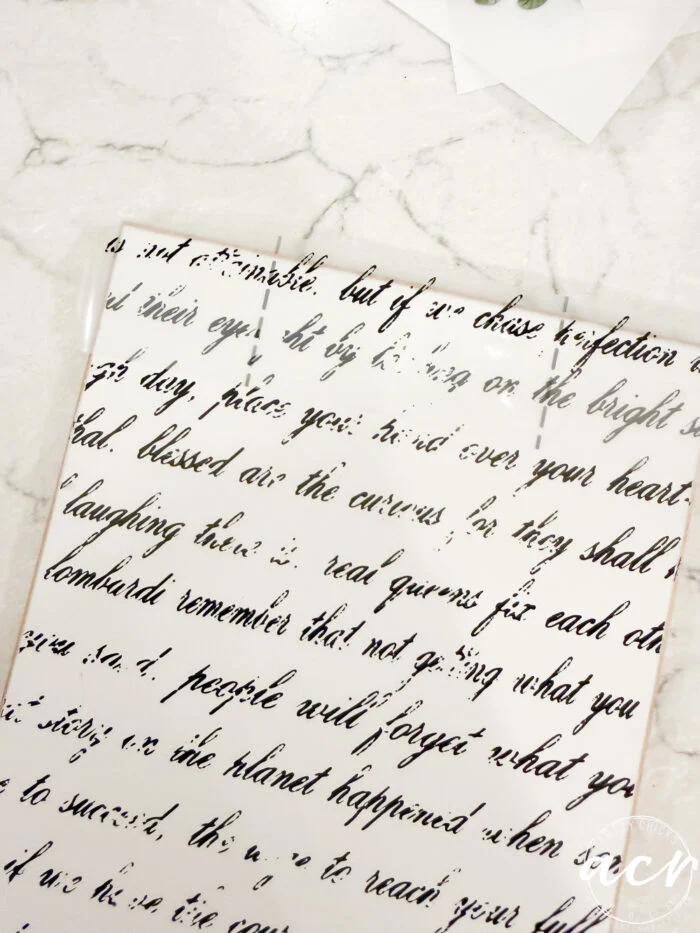 is not attainable. but if we chase perfection w
their eyes ht by on the bright s
gh day, place your hand over your heart.
hal. blessed are the curious for they shall h
laughing there is. real queens fix each oth
lombardi remember that not getting what you
give said. people will forget what you
story on the planet happened when som
to succeed, the urge to reach your full
if we have the cour
acr